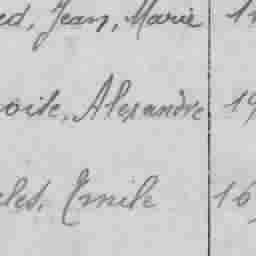 ed, Jean, Marie 1
oite, Alexandre 19
les, Emile 16